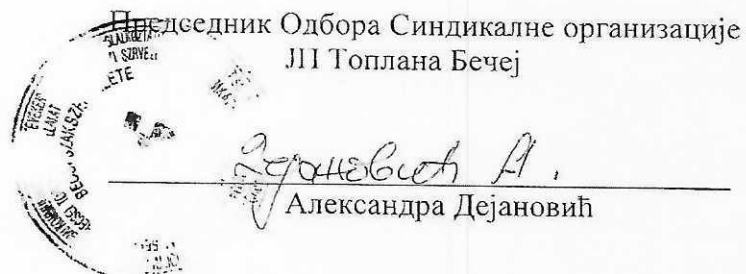 Председник Одбора Синдикалне организације
ЈП Топлана Бечеј
Дејановић А.
Александра Дејановић